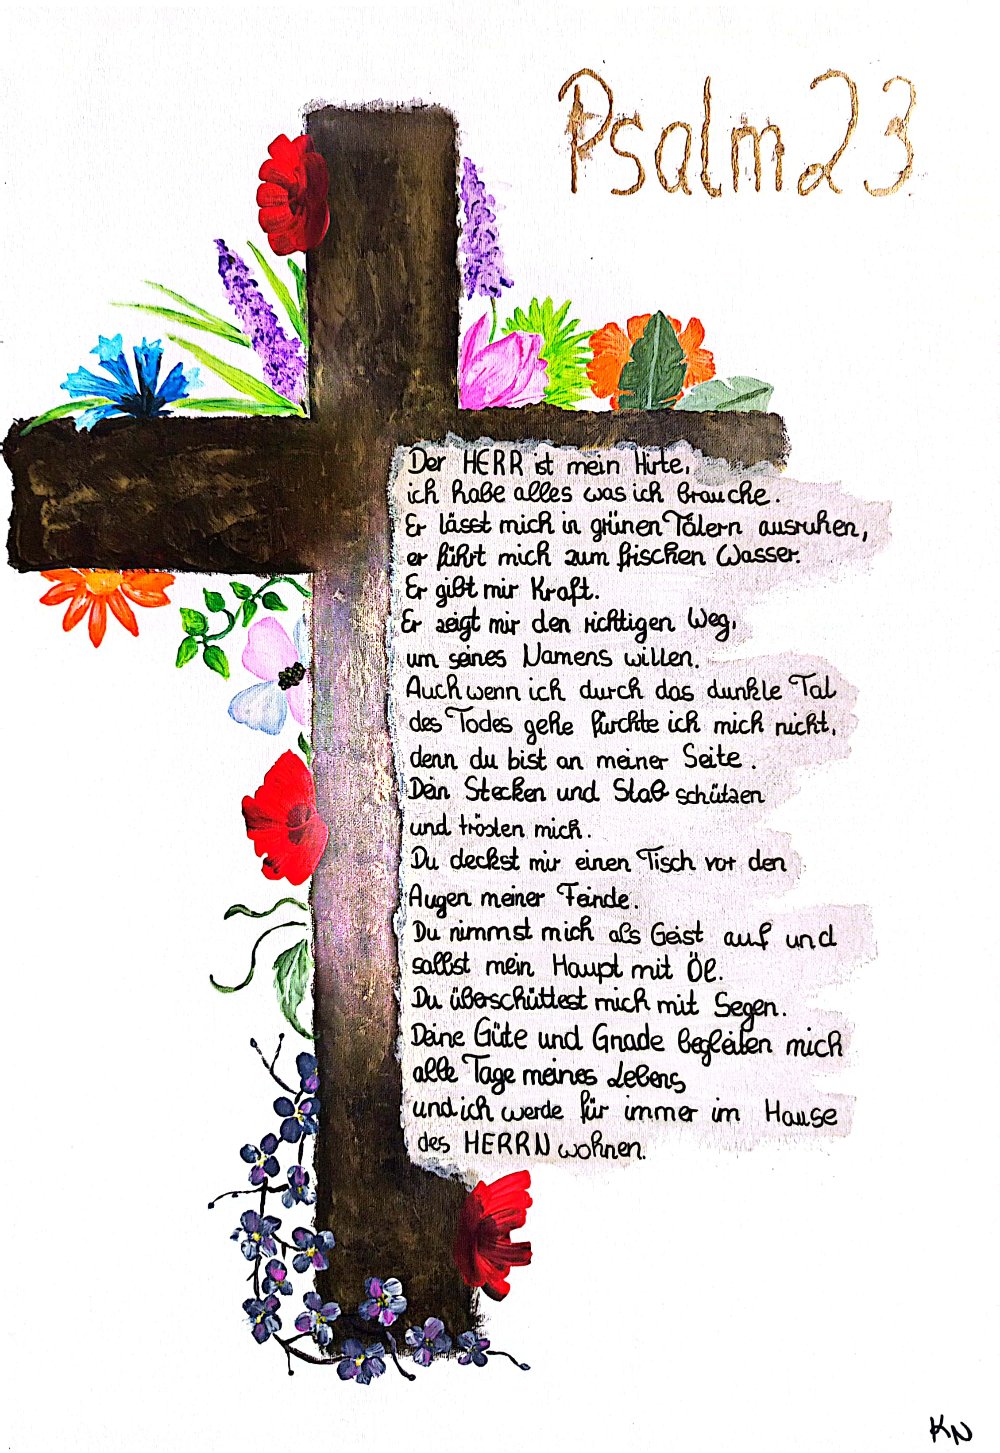 Psalm 23
Der HERR ist mein Hirte,
ich habe alles was ich brauche.
Er lässt mich in grünen Tälern ausruhen,
er führt mich zum frischen Wasser.
Er gibt mir Kraft.
Er zeigt mir den richtigen Weg,
um seines Namens willen.
Auch wenn ich durch das dunkle Tal
des Todes gehe fürchte ich mich nicht,
denn du bist an meiner Seite.
Dein Stecken und Stab schützen
und trösten mich.
Du deckst mir einen Tisch vor den
Augen meiner Feinde.
Du nimmst mich als Geist auf und
salbst mein Haupt mit Öl.
Du überschüttest mich mit Segen.
Deine Güte und Gnade begleiten mich
alle Tage meines Lebens
und ich werde für immer im Hause
des HERRN wohnen.
KN